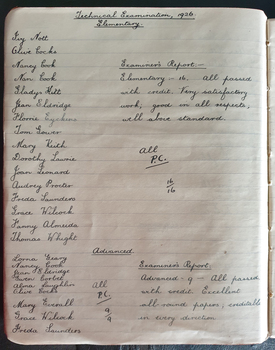 Technical Examination, 1936
Elementary.
Ivy Nott
Clive Cocks
Nancy Cook Examiner's Report:-
Nan Cook Elementary - 16. All passed
Gladys Hill with credit. Very satisfactory
Jean Eldridge work; good in all respects,
Florrie well above standard.
Tom Gower
Mary Keith All
Dorothy Lawrie P.C.
Joan Leonard
Audrey Procter 16/16
Freda Saunders
Grace Wilcock
Fanny Almeida
Thomas Whight
Advanced
Lorna Geary Examiner's Report.
Nancy Cook Advanced - 9 - All passed
Jean Eldridge with credit. Excellent
Alma All all round papers; creditable
Clive Cocks P.C. in every direction.
Mary Everall 9/9
Grace Wilcock
Freda Saunders